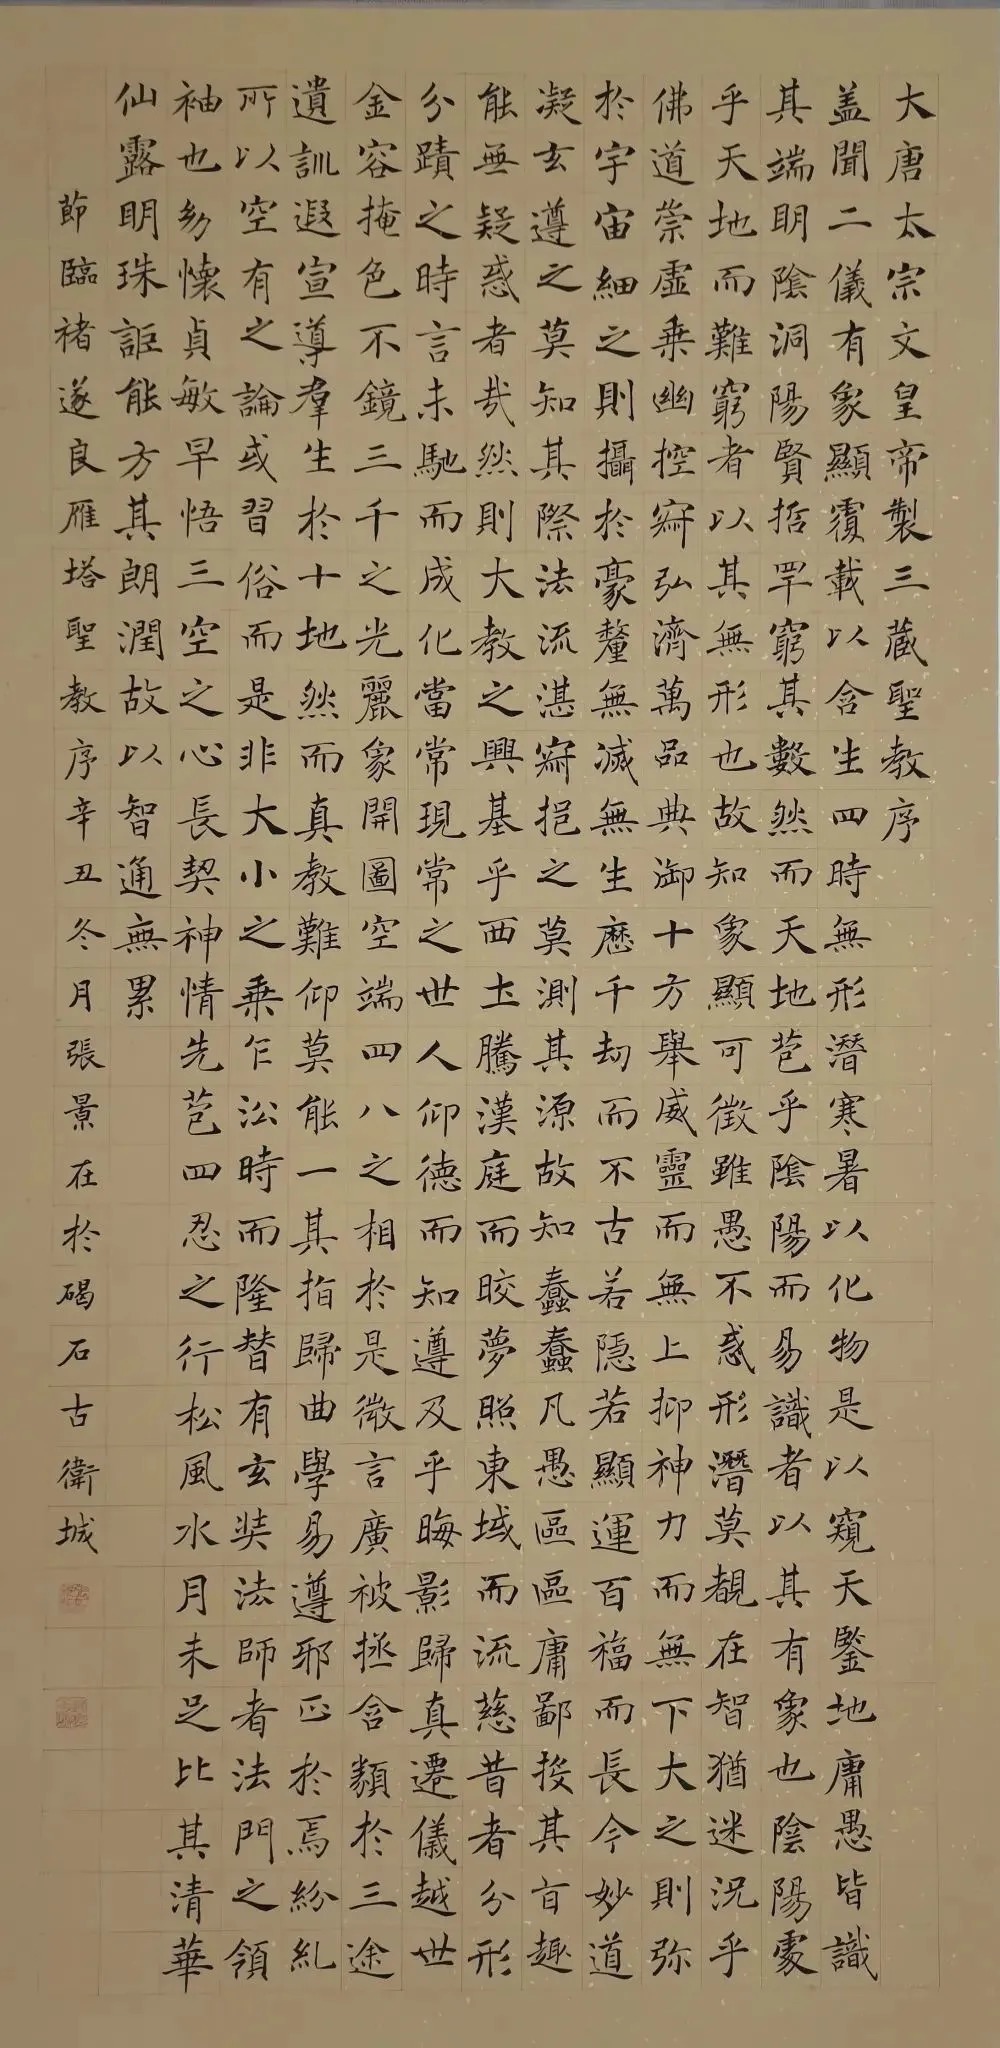 大唐太宗文皇帝製三藏聖教序
盖聞二儀有象顯覆載以含生四時無形潛寒暑以化物是以窺天鑒地庸愚皆識
其端明陰洞陽賢哲罕窮其數然而天地苞乎陰陽而易識者以其有象也陰陽處
乎天地而難窮者以其無形也故知象顯可徵雖愚不惑形潛莫覩在智猶迷況乎
佛道崇虛乗幽控寂弘濟萬品典御十方舉威靈而無上抑神力而無下大之則弥
於宇宙細之則攝於豪釐無滅無生歷千劫而不古若隱若顯運百福而長今妙道
凝玄遵之莫知其際法流湛寂挹之莫測其源故知蠢蠢凡愚區區庸鄙投其旨趣
能無疑惑者哉然則大教之興基乎西土騰漢庭而皎夢照東域而流慈昔者分形
分蹟之時言未馳而成化當常現常之世人仰德而知遵及乎晦影歸真遷儀越世
金容掩色不鏡三千之光麗象開圖空端四八之相於是微言廣被拯含類於三途
遺訓遐宣導羣生於十地然而真教難仰莫能一其指歸曲學易遵邪正於焉紛糺
所以空有之論或習俗而是非大小之乗乍沿時而隆替有玄奘法師者法門之領
袖也幼懷貞敏早悟三空之心長契神情先苞四忍之行松風水月未足比其清華
仙露明珠詎能方其朗潤故以智通無累
節臨褚遂良雁塔聖教序辛丑冬月張景在於碣石古衛城